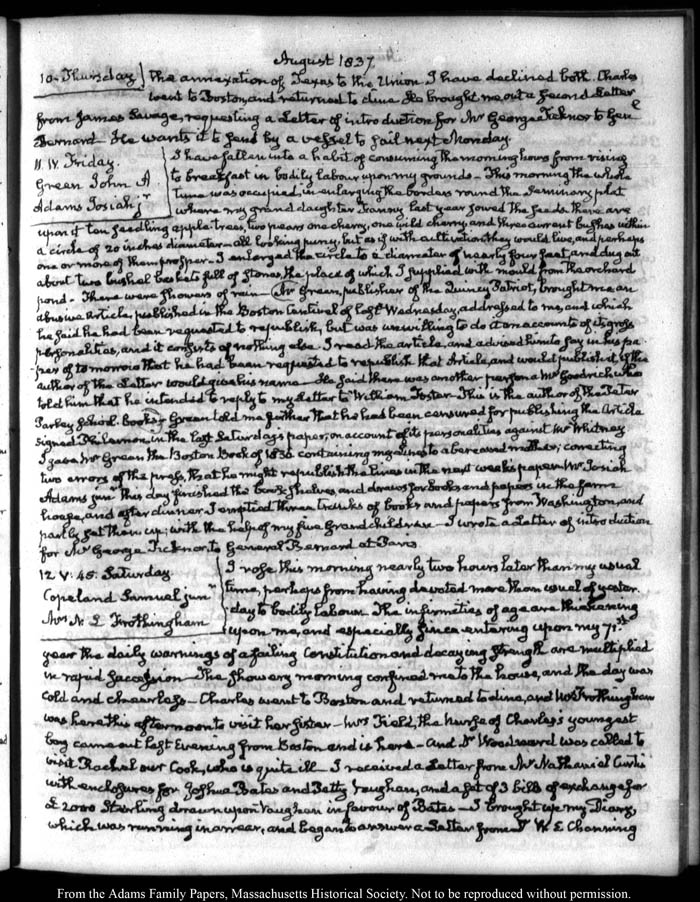 August 1837.
10. Thursday} the annexation of Texas to the Union I have declined both. Charles
went to Boston, and returned to dine. He brought me out a second Letter
from James Savage, requesting a Letter of introduction for Mr George Ticknor to Genl
Bernard. He wants it to send by a vessel to sail next Monday.
11. IV. Friday. I have fallen into a habit of consuming the morning hours from rising
Green John A to breakfast in bodily labour upon my grounds. This morning the whole
Adams Josiah jr time was occupied in enlarging the borders round the Seminary plat
where my grand daughter Fanny last year sowed the seeds. there are
upon it ten seedling apple trees, two pears one cherry, one wild cherry, and three currant bushes within
a circle of 20 inches diameter. All looking puny, but as if with cultivation they would live, and perhaps
one or more of them prosper. I enlarged the circle to a diameter of nearly four feet, and dug out
about two bushel baskets full of stones, the place of which I supplied with mould from the orchard
pond. There were showers of rain. Mr Green, publisher of the Quincy Patriot, brought me an
abusive Article, published in the Boston Centinel of last Wednesday, addressed to me, and which
he said he had been requested to republish, but was unwilling to do it on account of its gross
personalities, and it consists of nothing else. I read the article, and advised him to say in his pa-
per of tomorrow that he had been requested to republish that Article, and would publish it, if the
author of the Letter would give his name. He said there was another person a Mr Goodrich who
told him that he intended to reply to my Letter to William Foster. This is the author of the Peter
Parley School-books. Green told me further that he has been censured for publishing the Article
signed in the last Saturdays paper, on account of its personalities against Mr Whitney
I gave Mr Green the Boston Book of 1836 containing my Lines to a bereaved mother; correcting
two errors of the press, that he might republish the Lines in the next weeks paper. Mr Josiah
Adams jun. this day finished the book shelves and draws for books and papers in the farm
house, and after dinner I emptied three trunks of books and papers from Washington, and
partly set them up; with the help of my five Grandchildren. I wrote a Letter of introduction
for Mr George Ticknor, to General Bernard at Paris.
12. V. 45. Saturday. I rose this morning nearly two hours later than my usual
Copeland Samuel junr time, perhaps from having devoted more than usual of yester-
Mrs N. L Frothingham day to bodily labour. The infirmities of age are thickening
upon me, and especially since entering upon my 71st
year the daily warnings of a failing Constitution and decaying strength are multiplied
in rapid succession. The showery morning confined me to the house, and the day was
cold and cheerless. Charles went to Boston and returned to dine, and Mrs Frothingham
was here this afternoon to visit her sister. Mrs Field, the nurse of Charles's youngest
boy came out last Evening from Boston and is here. And Dr Woodward was called to
visit Rachel our Cook, who is quite ill. I received a Letter from Mr Nathaniel Curtis
with enclosures for Joshua Bates and Petty Vaughan, and a set of 3 bills of exchange for
£ 2000 Sterling drawn upon Vaughan in favour of Bates. I brought up my Diary,
which was running in arrear, and began to answer a Letter from Dr W. E. Channing
From the Adams Family Papers, Massachusetts Historical Society. Not to be reproduced without permission.